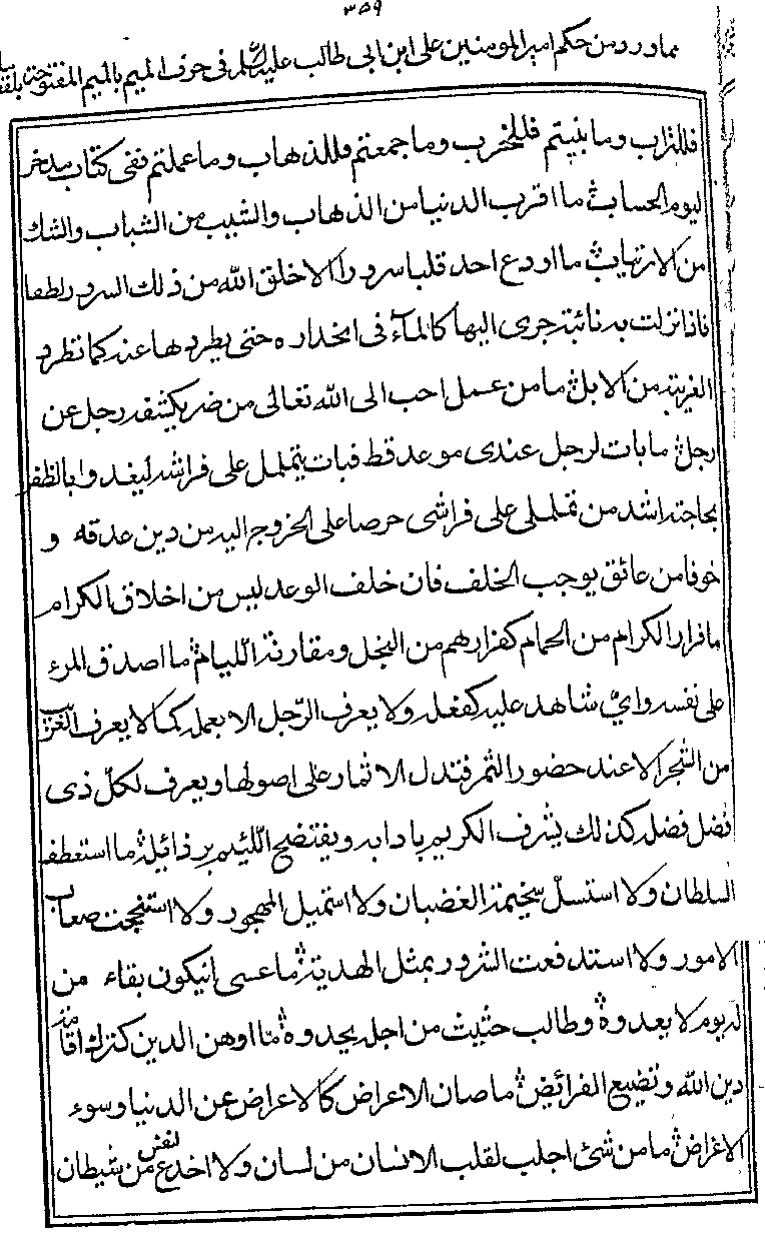 ٣٥٩
مما ورد من حكم امير المومنين على ابن ابى طالب عليه السلام فى حرف الميم بالميم المفتوحة بلفظ ما
فللتراب وما بنيتم فللخراب وما جمعتم فللذهاب وما عملتم ففى كتاب مدخر
ليوم الحساب ما اقرب الدنيا من الذهاب والشيب من الشباب والشك
من الارتياب ما اودع احد قلبا سرورا الا خلق الله من ذلك السرور لطفا
فاذا نزلت به نائبة جرى اليها كالمآء فى انحداره حتى يطردها عنه كما تطرد
الغريبة من الابل ما من عمل احب الى الله تعالى من ضر يكشفه رجل عن
رجل ما بات لرجل عندى موعد قط فبات يتململ على فراشه ليغدو بالظفر
بحاجته اشد من تململى على فراشى حرصا على الخروج اليه من دين عدته و
خوفا من عائق يوجب الخلف فان خلف الوعد ليس من اخلاق الكرام
ما فرار الكرام من الحمام كفرارهم من البخل ومقارنة اللئام ما اصدق المرء
على نفسه واى شاهد عليه كفعله ولا يعرف الرجل الا بعمله كما لا يعرف الغريب
من الشجر الا عند حضور الثمر فتدل الاثمار على اصولها ويعرف لكل ذى
فضل فضله كذلك يشرف الكريم بادابه ويفتضح اللئيم برذائله ما استعطف
السلطان ولا استسل سخيمة الغضبان ولا استميل المهجور ولا استنجحت صعاب
الامور ولا استدفعت الشرور بمثل الهدية ما عسى انيكون بقاء من
له يوم لا يعدوه وطالب حثيث من اجله يحدوه ما اوهن الدين كترك اقامة
دين الله وتضييع الفرائض ما صان الاعراض كالاعراض عن الدنيا وسوء
الاغراض ما من شئ اجلب لقلب الانسان من لسان ولا اخدع لنفس من شيطان